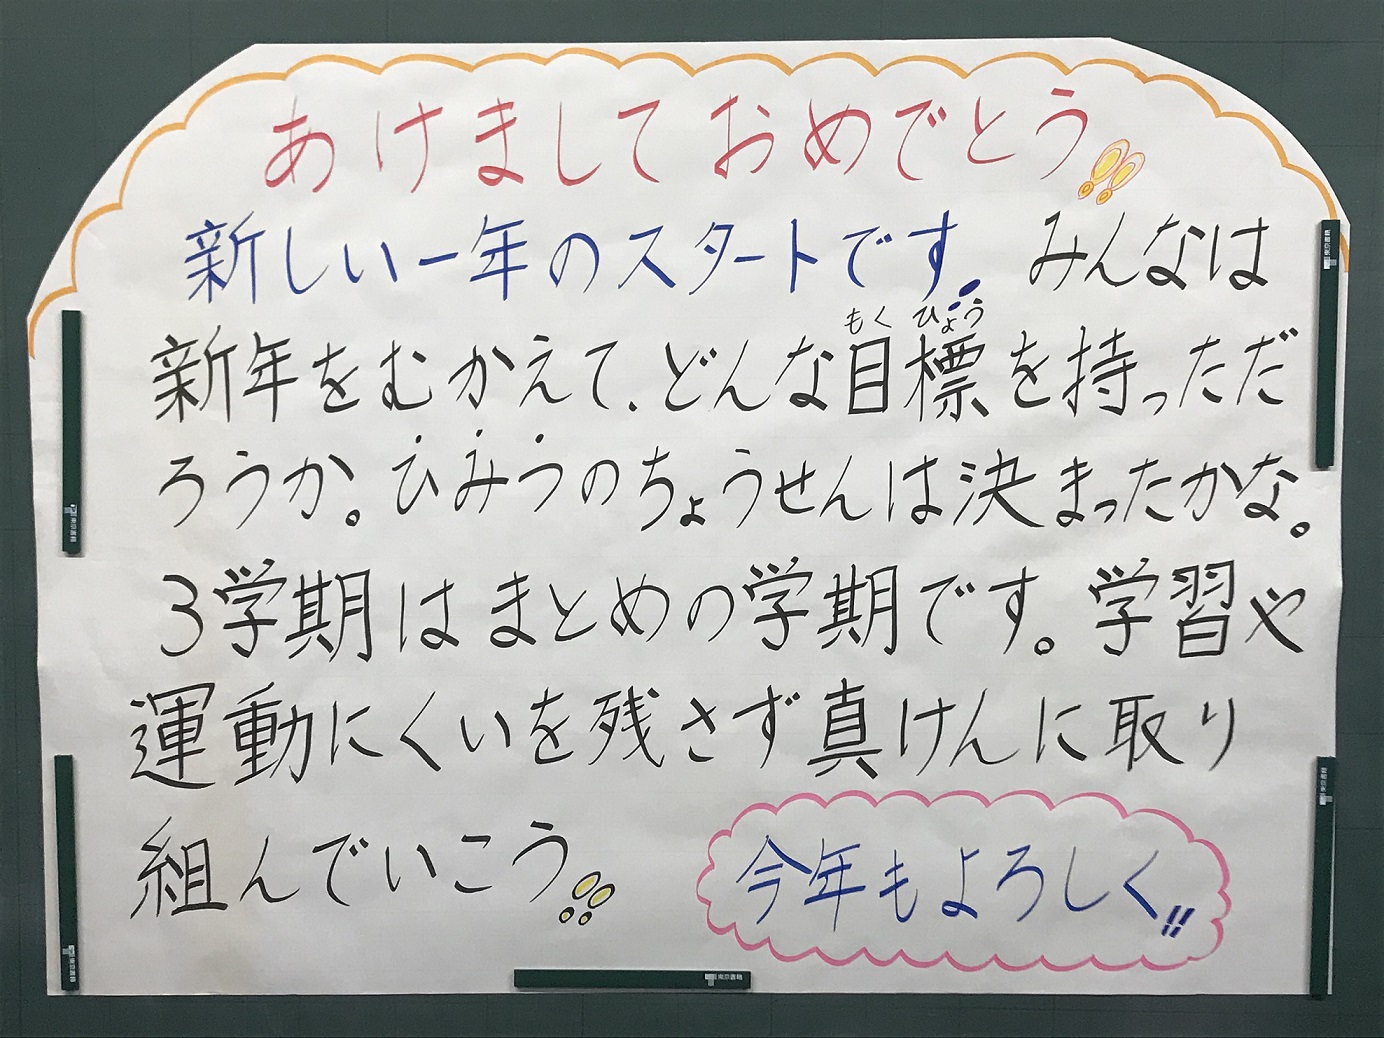 あけましておめでとう!!
新しい一年のスタートです。みんなは
もく ひょう
新年をむかえて、どんな目標を持っただ
ろうか。ひみつのちょうせんは決まったかな。
3学期はまとめの学期です。学習や
運動にくいを残さず真けんに取り
組んでいこう!!
今年もよろしく!!
東京書籍
東京書籍
東京書籍
東京書籍
東京書籍